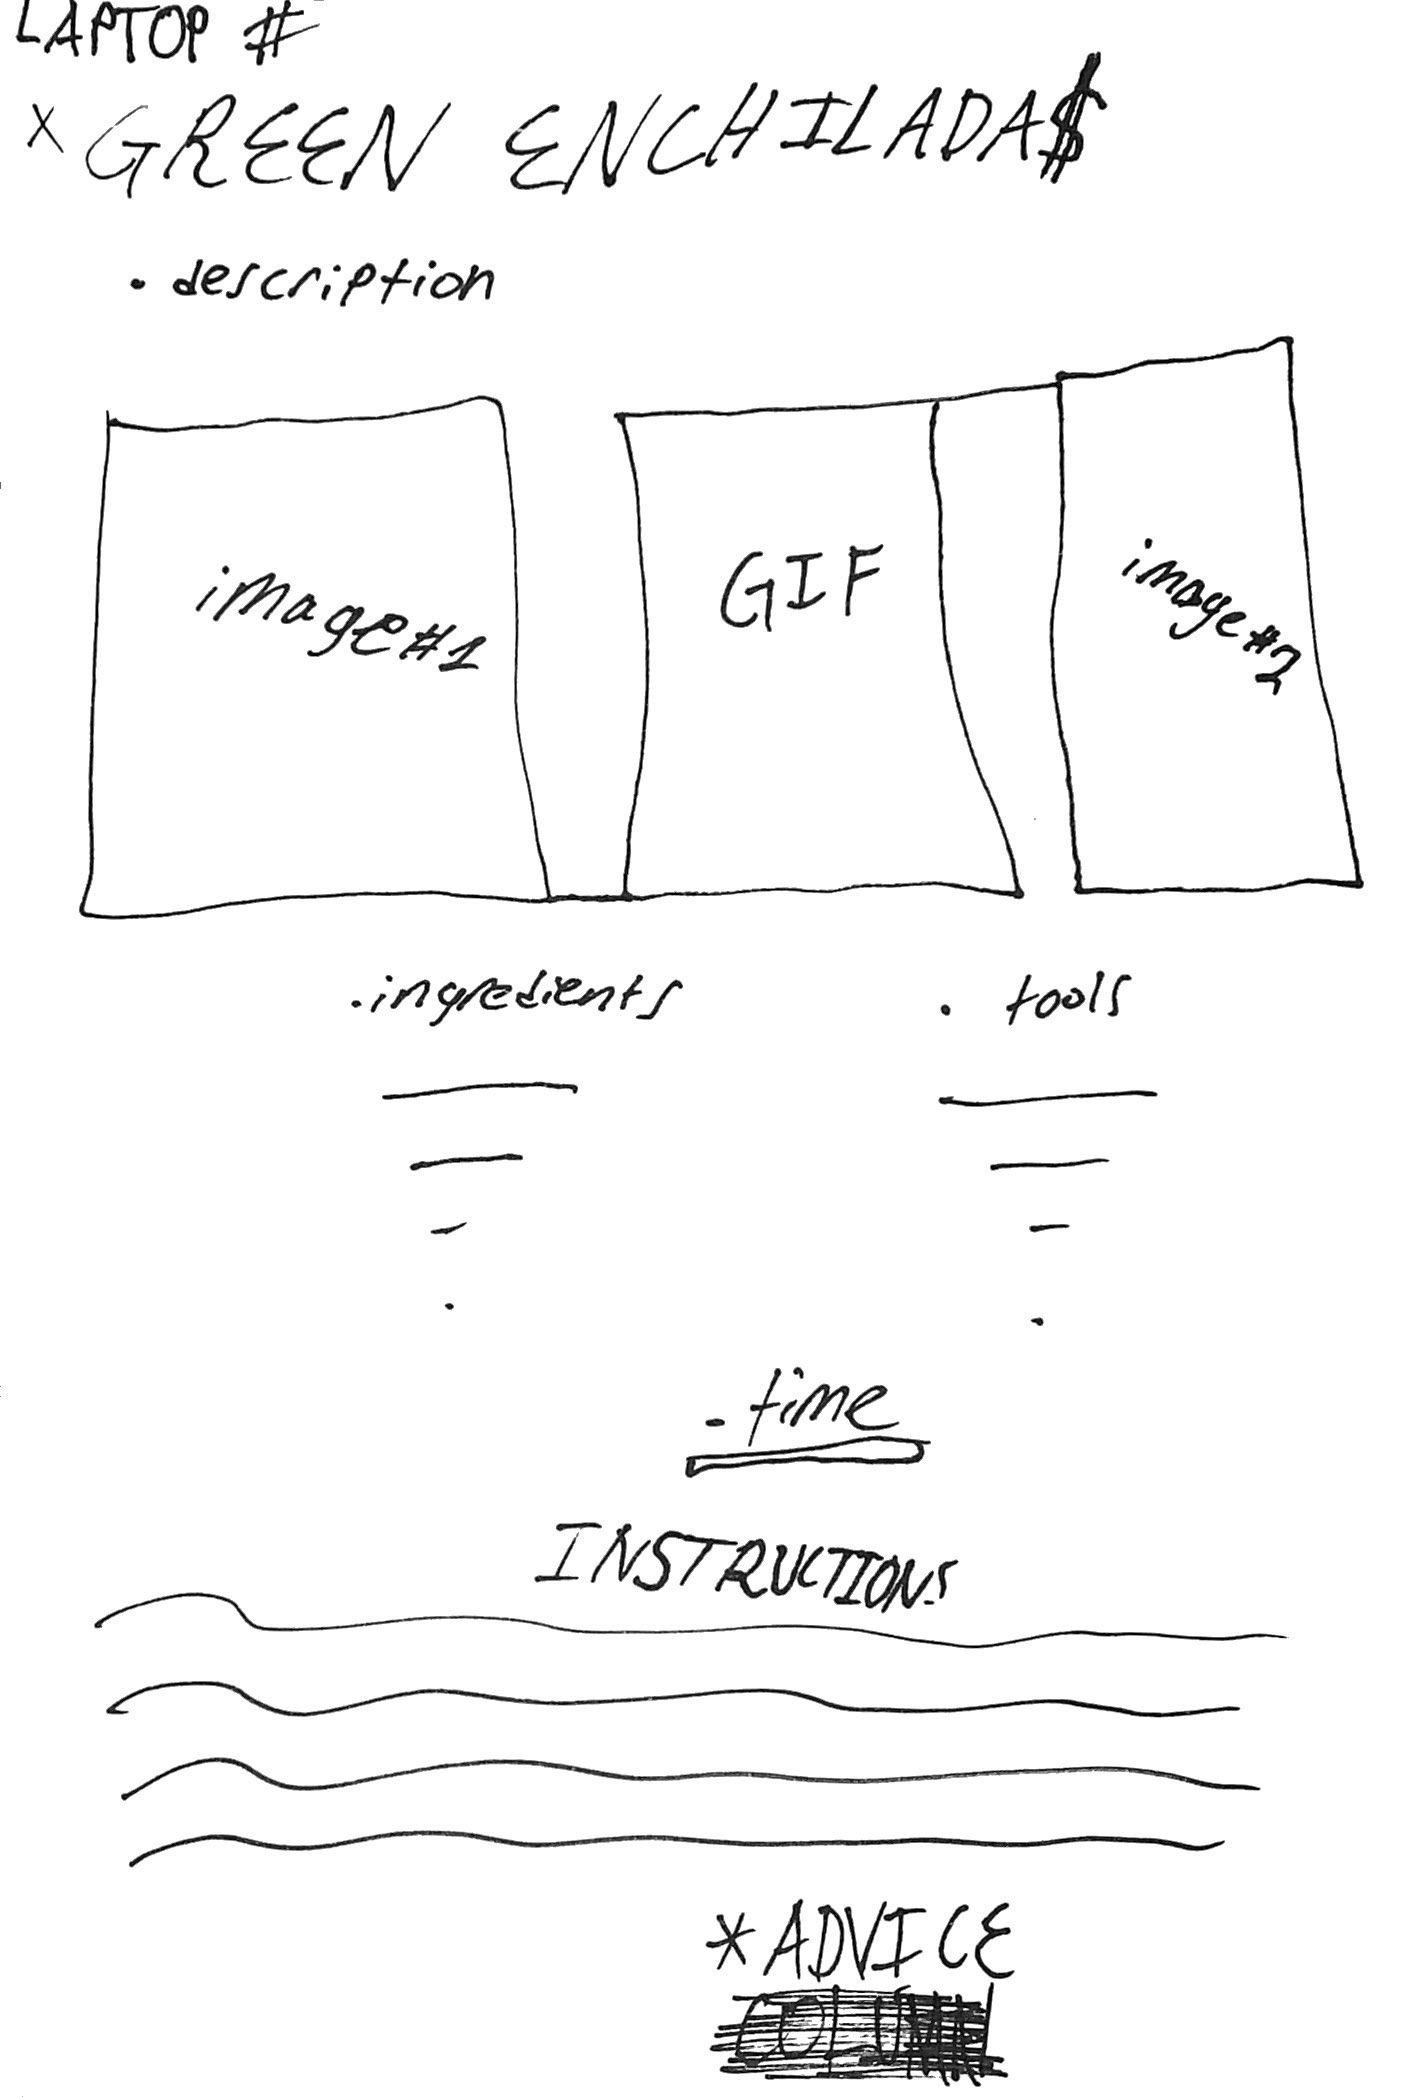 LAPTOP #
x GREEN ENCHILADA$
. description
image#1 GIF image#2
. ingredients . tools
. time
INSTRUCTIONS
*ADVICE